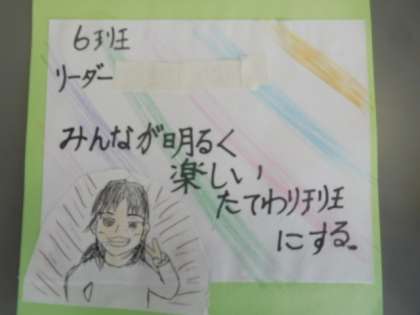 6班
リーダー
みんなが明るく
楽しい
たてわり班
にする。